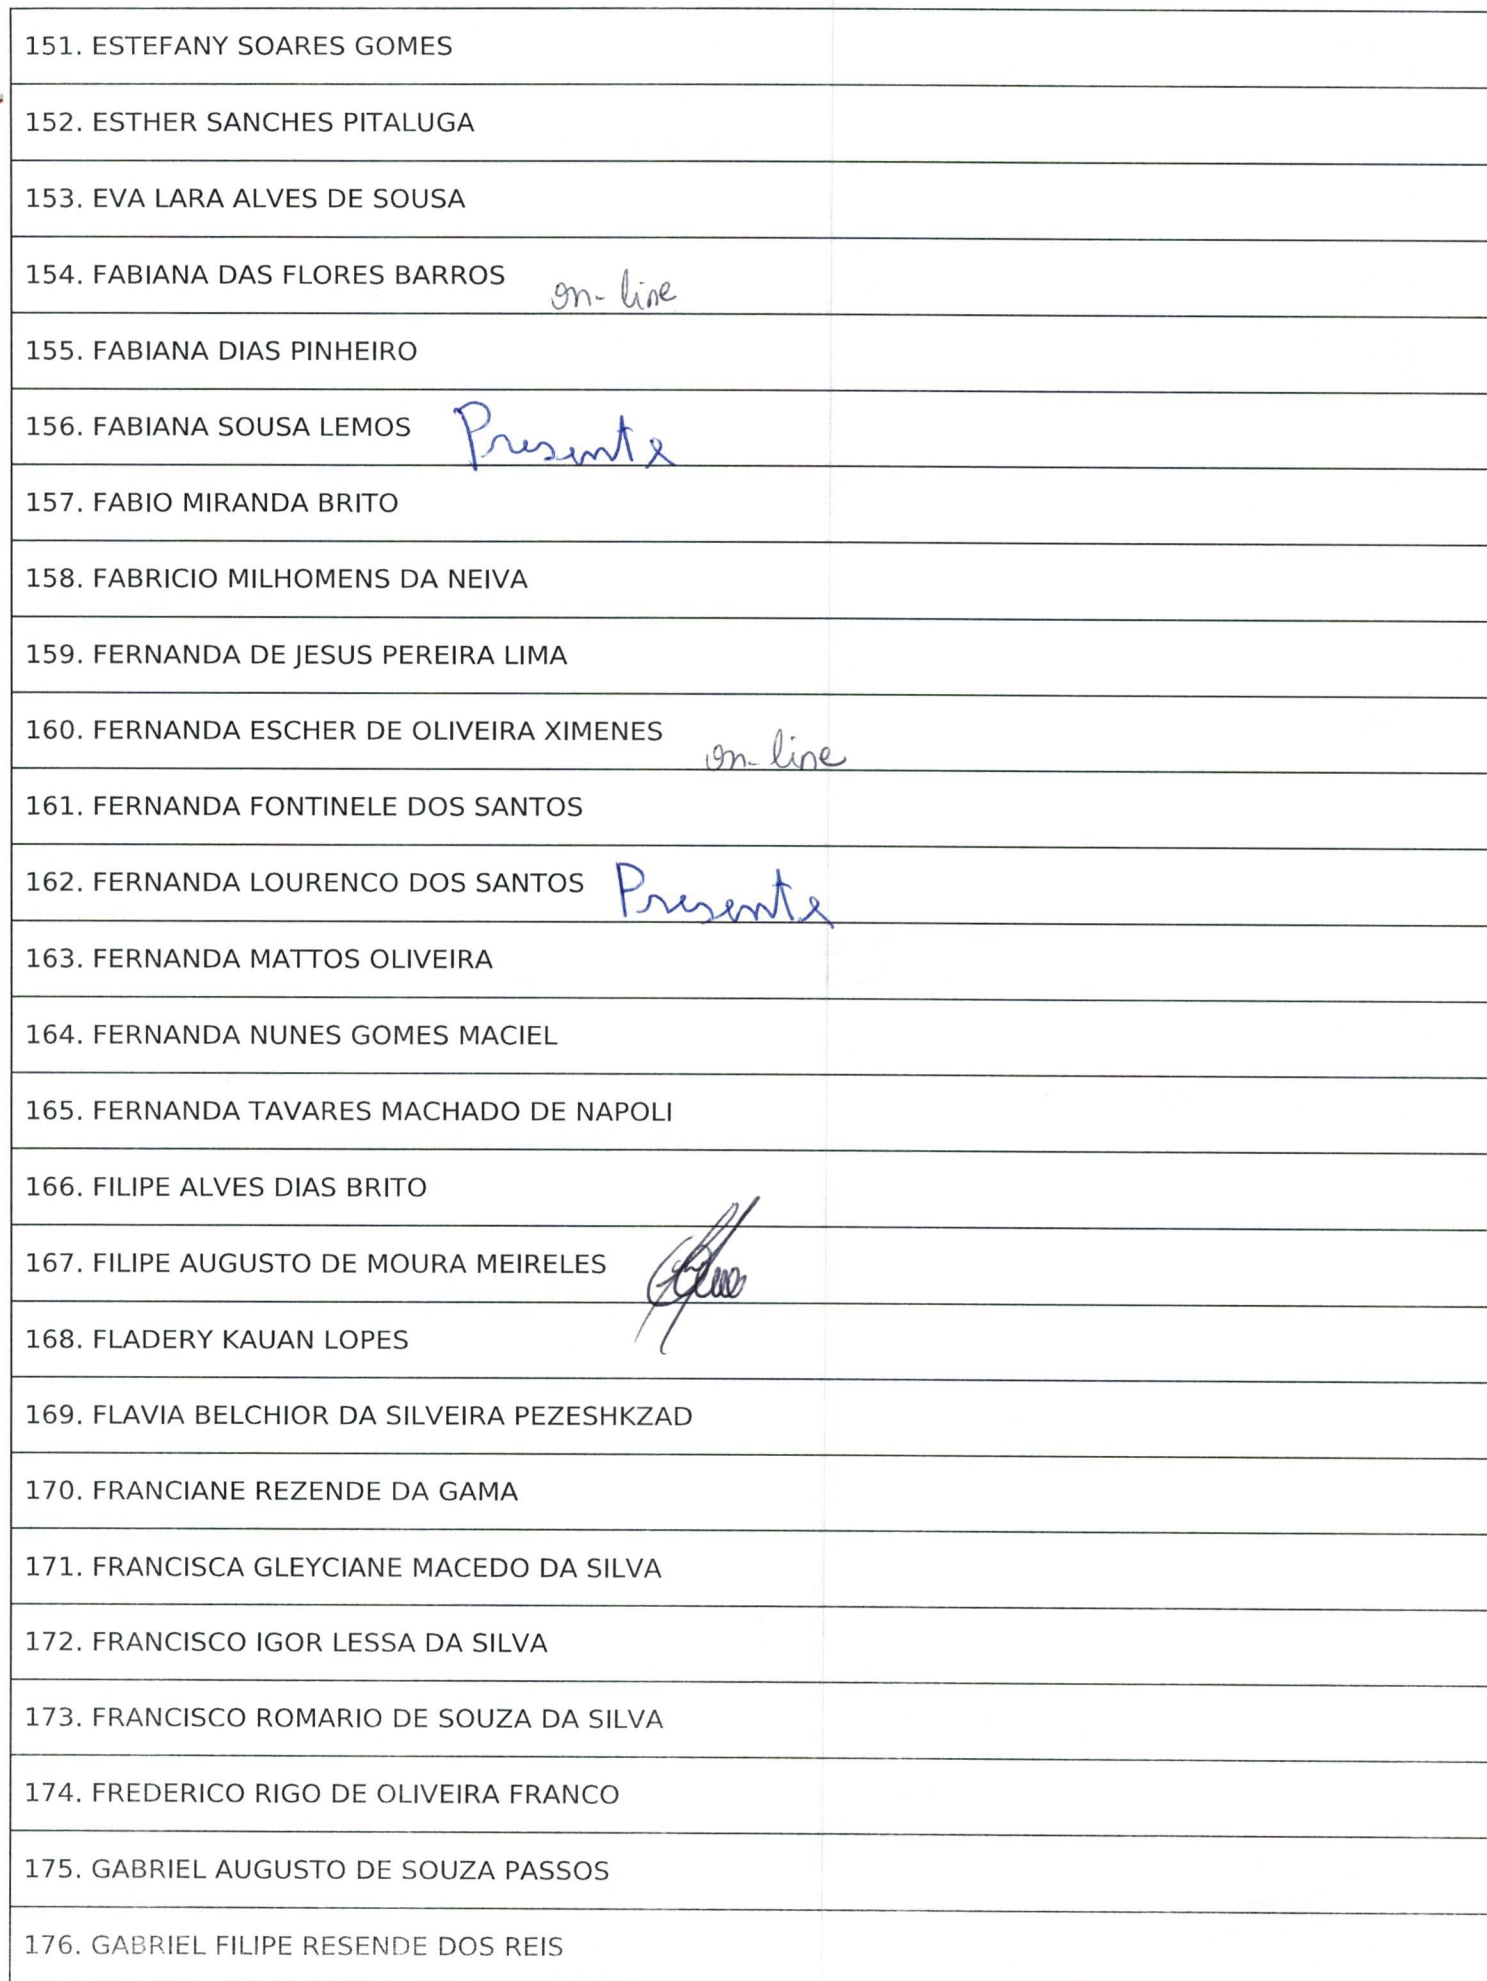 151. ESTEFANY SOARES GOMES
152. ESTHER SANCHES PITALUGA
153. EVA LARA ALVES DE SOUSA
154. FABIANA DAS FLORES BARROS on-line
155. FABIANA DIAS PINHEIRO
156. FABIANA SOUSA LEMOS Presente
157. FABIO MIRANDA BRITO
158. FABRICIO MILHOMENS DA NEIVA
159. FERNANDA DE JESUS PEREIRA LIMA
160. FERNANDA ESCHER DE OLIVEIRA XIMENES on-line
161. FERNANDA FONTINELE DOS SANTOS
162. FERNANDA LOURENCO DOS SANTOS Presente
163. FERNANDA MATTOS OLIVEIRA
164. FERNANDA NUNES GOMES MACIEL
165. FERNANDA TAVARES MACHADO DE NAPOLI
166. FILIPE ALVES DIAS BRITO
167. FILIPE AUGUSTO DE MOURA MEIRELES
168. FLADERY KAUAN LOPES
169. FLAVIA BELCHIOR DA SILVEIRA PEZESHKZAD
170. FRANCIANE REZENDE DA GAMA
171. FRANCISCA GLEYCIANE MACEDO DA SILVA
172. FRANCISCO IGOR LESSA DA SILVA
173. FRANCISCO ROMARIO DE SOUZA DA SILVA
174. FREDERICO RIGO DE OLIVEIRA FRANCO
175. GABRIEL AUGUSTO DE SOUZA PASSOS
176. GABRIEL FILIPE RESENDE DOS REIS